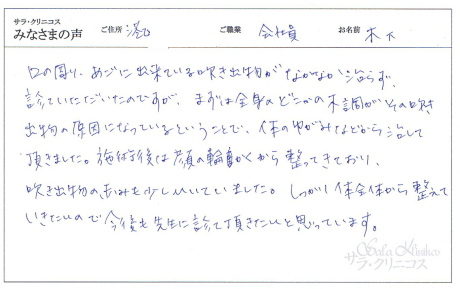 サラ・クリニコス
みなさまの声 ご住所 港区 ご職業 会社員 お名前 木下
口の周り、あごに出来ている吹き出物がなかなか治らず、
診ていただいたのですが、まずは全身のどこかの不調がその吹き
出物の原因になっているということで、体のゆがみなどから治して
頂きました。施術後は顔の輪郭から整ってきており、
吹き出物の赤みも少しひいていました。しっかり体全体から整えて
いきたいので今後も先生に診て頂きたいと思っています。
Sala Klinikos
サラ・クリニコス